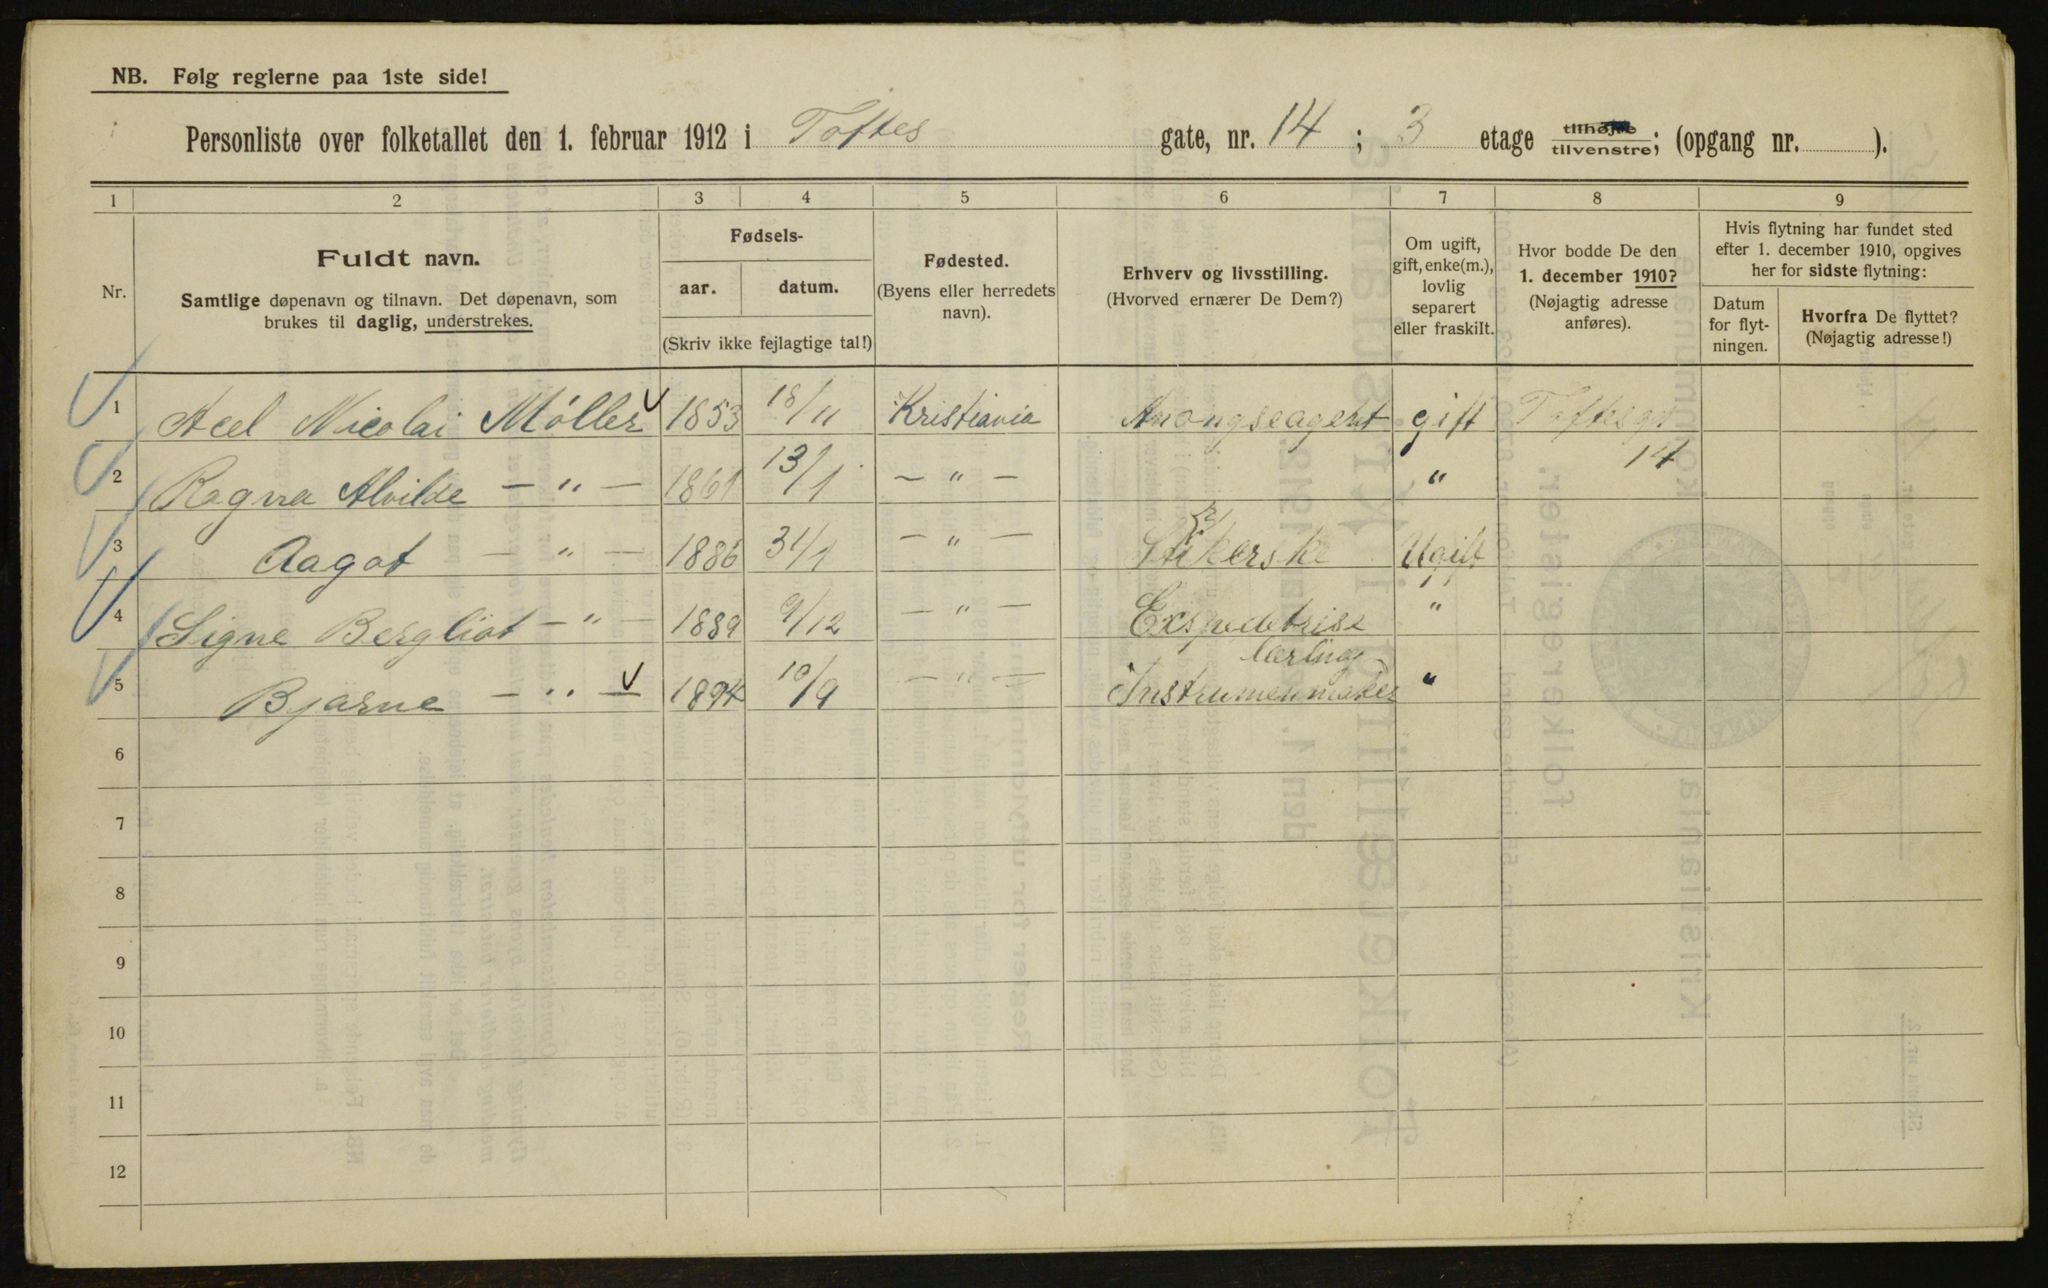 NB. Følg reglerne paa 1ste side!
Personliste over folketallet den 1. februar 1912 i Toftes gate, nr. 14 ; 3 etage tilhøjre tilvenstre; (opgang nr. ).
1 2 3 4 5 6 7 8 9
Nr.
Fuldt navn.
Samtlige døpenavn og tilnavn. Det døpenavn, som
brukes til daglig, understrekes.
Fødsels-
aar. datum.
(Skriv ikke fejlagtige tal!)
Fødested.
(Byens eller herredets
navn).
Erhverv og livsstilling.
(Hvorved ernærer De Dem?)
Om ugift,
gift, enke(m.),
lovlig
separert
eller fraskilt.
Hvor bodde De den
1. december 1910?
(Nøjagtig adresse
anføres).
Hvis flytning har fundet sted
efter 1. december 1910, opgives
her for sidste flytning:
Datum
for flyt-
ningen.
Hvorfra De flyttet?
(Nøjagtig adresse!)
1 Acel Nicolai Møller 1853 18/11 Kristiania Anongseagent gift Toftesgt
14
2 Ragna Alvilde — " — 1861 13/1 — " — "
3 Aagot — " — 1886 31/1 — " — Ugift
4 Signe Bergliot — " — 1889 9/12 — " — Expedetrise "
lærling
5 Bjarne — " — 1894 10/9 — " — Instrumenmaker "
6
7
8
9
10
11
12